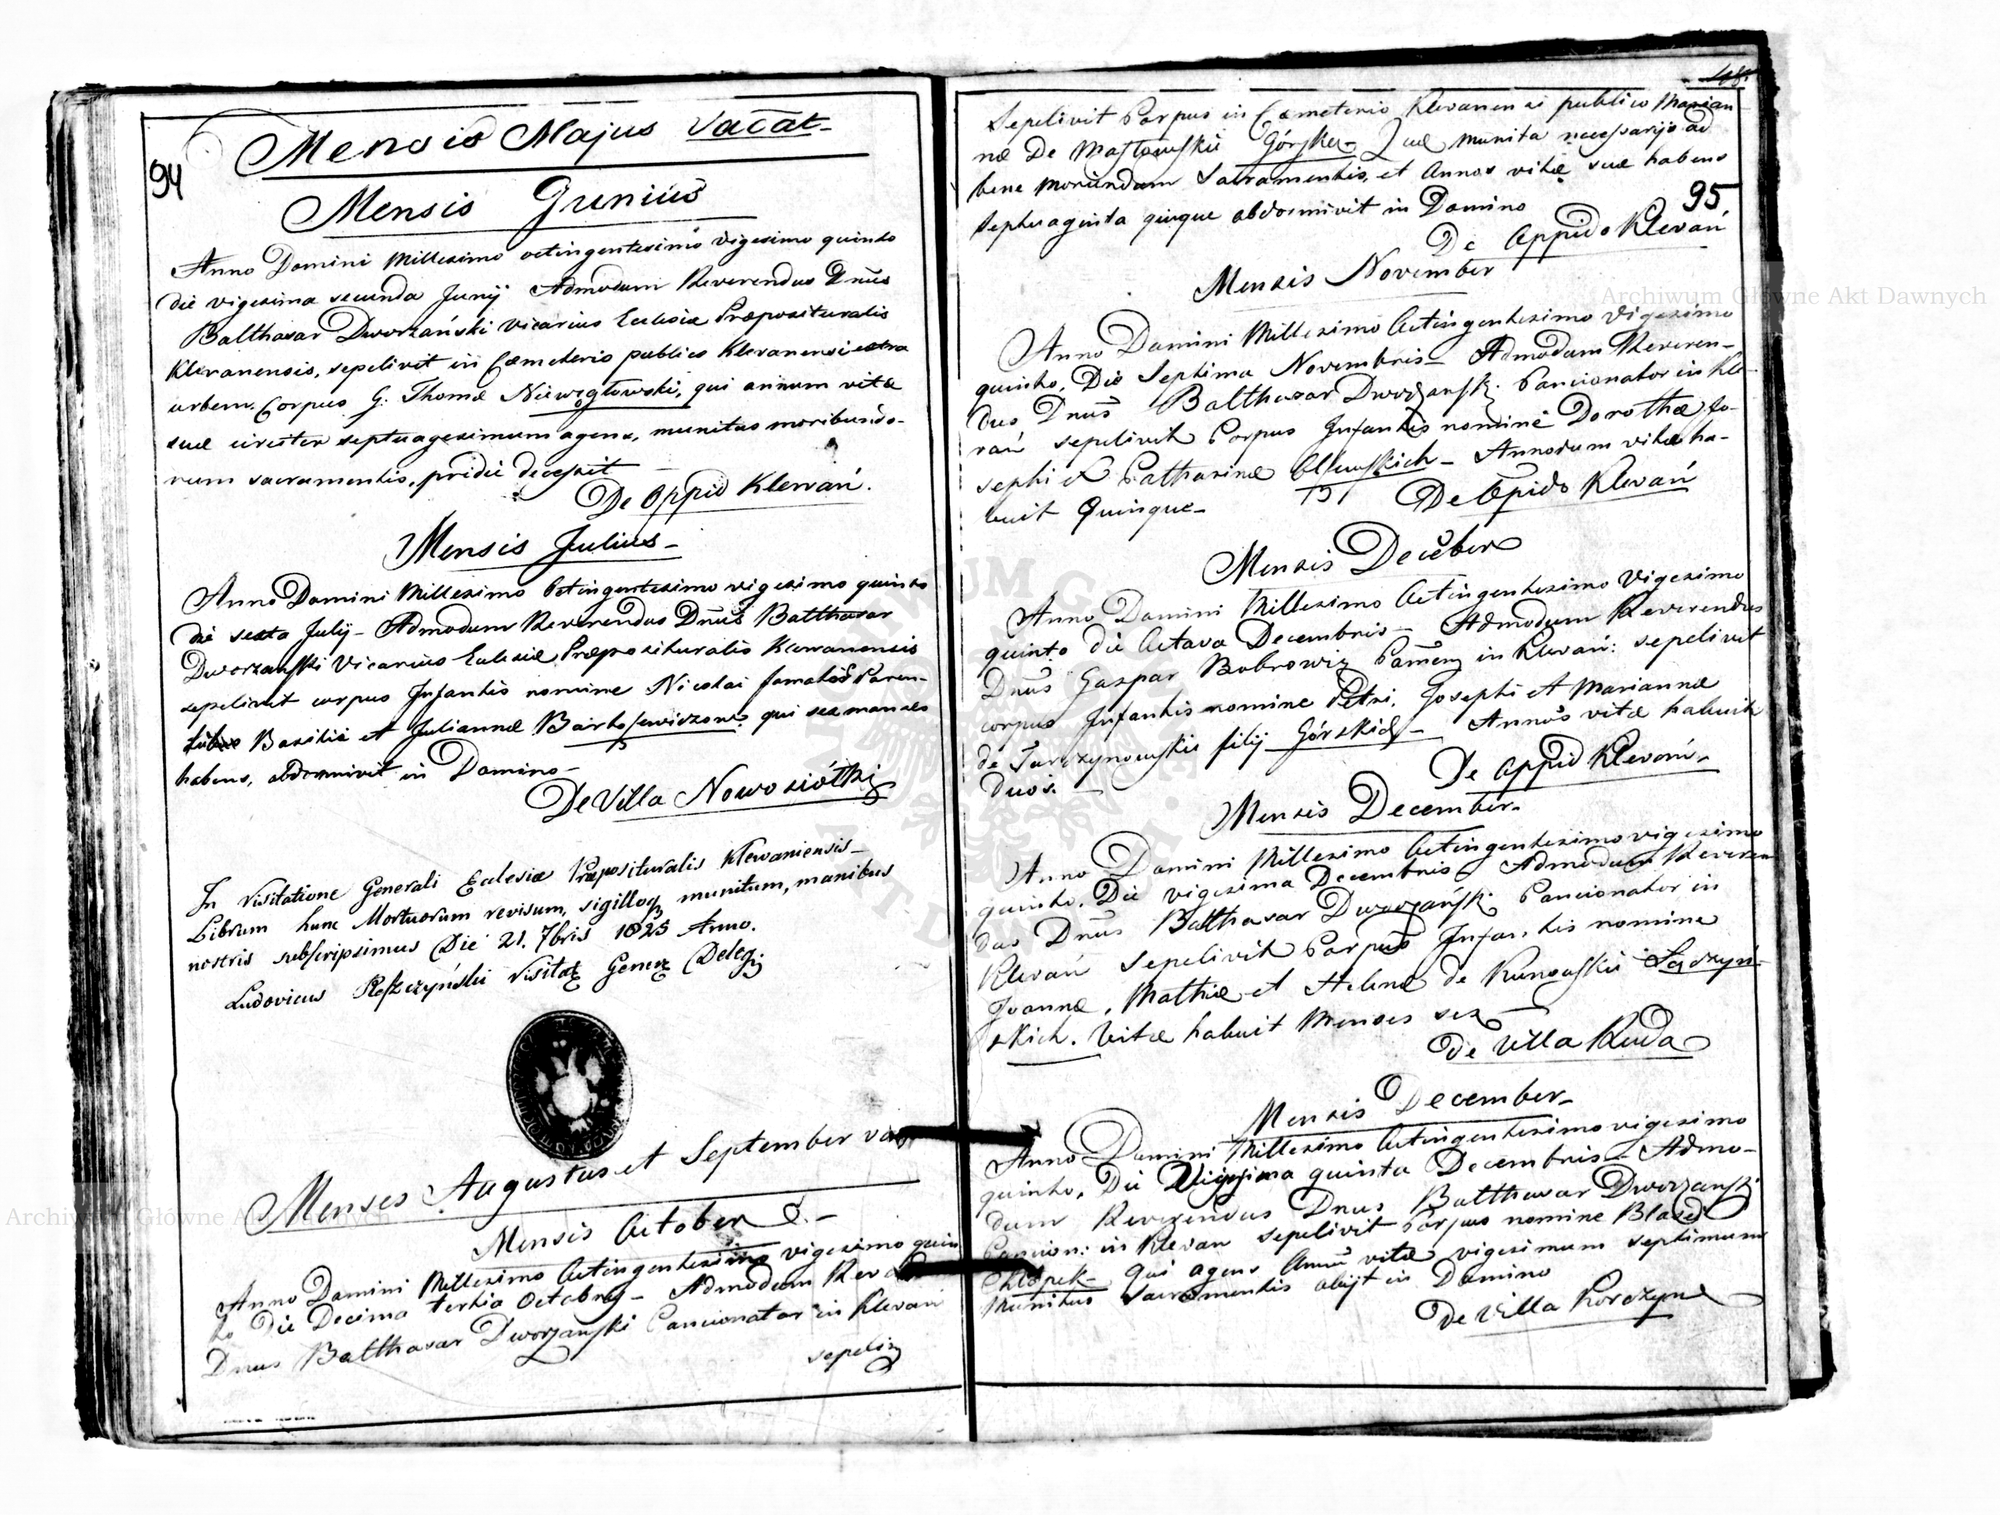 Mensis Majus Vacat
94
Mensis Junius
Anno Domini Millesimo octingentesimo vigesimo quinto
die vigesima secunda Junij Admodum Reverendus Dnus
Balthasar Dworzański vicarius Eclesiæ Præposituralis
Klevanensis, sepelivit in Cæmeterio publico Klevanensi extra
urbem. Corpus G. Thomæ Niewęgłowski, qui annum vitæ
suæ circiter septuagesimum agens, munitus moribundo-
rum sacramentis, pridie decessit
De Oppid Klewań.
Mensis Julius
Anno Domini Millesimo Octingentesimo vigesimo quinto
die sexta Julij - Admodum Reverendus Dnus Balthasar
Dworzanski Vicarius Eclesiæ Præposituralis Klewanensis
sepelivit corpus Infantis nomine Nicolai famatos Paren-
Basilii et Juliannæ Bartosewiczow: qui sex menses
habens, abdormivit in Domino -
De Villa Nowosiółki
In Visitatione Generali Eclesiæ Præposituralis Klewaniensis
Librum hunc Mortuorum revisum, sigilloq munitum, manibus
nostris subscripsimus Die 21. 7bris 1825 Anno.
Ludovicus Visitat Gener Deleg:
Menses Augustus et September
Mensis October
Anno Domini Millesimo Octingentesimo vigesimo quin
to Die Decima tertia Octobris - Admodum
Dnus Balthasar Dworzanski Concionator in Klevań
sepeli
Sepelivit Corpus in Cæmeterio Klevanensi publico Marian
næ De Górska - Quæ munita necessarijs ad
bene moriendum Sacramentis, et Annos vitæ suæ habens
Septuaginta quinque abdormivit in Domino
95
De Oppido Klevań
Mensis November
Anno Domini Millesimo Octingentesimo Vigesimo
quinto, Die Septima Novembris - Admodum Reveren-
dus Dnus Balthasar Dworzanski Concionator in Kle-
vań sepelivit Corpus Infantis nomine Dorothæ Jo-
sephi et Catharinæ - Annorum vitæ ha-
buit Quinque -
De Opido Klevań
Mensis Decéber
Anno Domini Millesimo Octingentesimo Vigesimo
quinto die Octava Decembris - Admodum Reverendus
Dnus Gaspar Bobrowicz in Klevań: sepelivit
corpus Infantis nomine Petri, Josephi et Mariannæ
de filij Górskich - Annos vitæ habuit
duos.
De Oppid Klevań -
Mensis December -
Anno Domini Millesimo Octingentesimo vigesimo
quinto, Die vigesima Decembris Admodum Reveren
dus Dnus Balthasar Dworzański Concionator in
Klevań Sepelivit Corpus Infantis nomine
Joannæ, Mathiæ et Helenæ de Kunowskii
skich. Vitæ habuit Menses sex
de Villa Ruda
Mensis December -
Anno Domini Millesimo Octingentesimo vigesimo
quinto, Die Vigesima quinta Decembris - Admo-
dum Reverendus Dnus Balthasar Dworzanski
Concion: in Klevań sepelivit Corpus nomine Blasei
Chłopek - Qui agens Annū vitæ vigesimum septimum
Munitus Sacramentis abijt in Domino
De Villa Korczyn
Archiwum Główne Akt Dawnych
Archiwum Główne Akt Dawnych